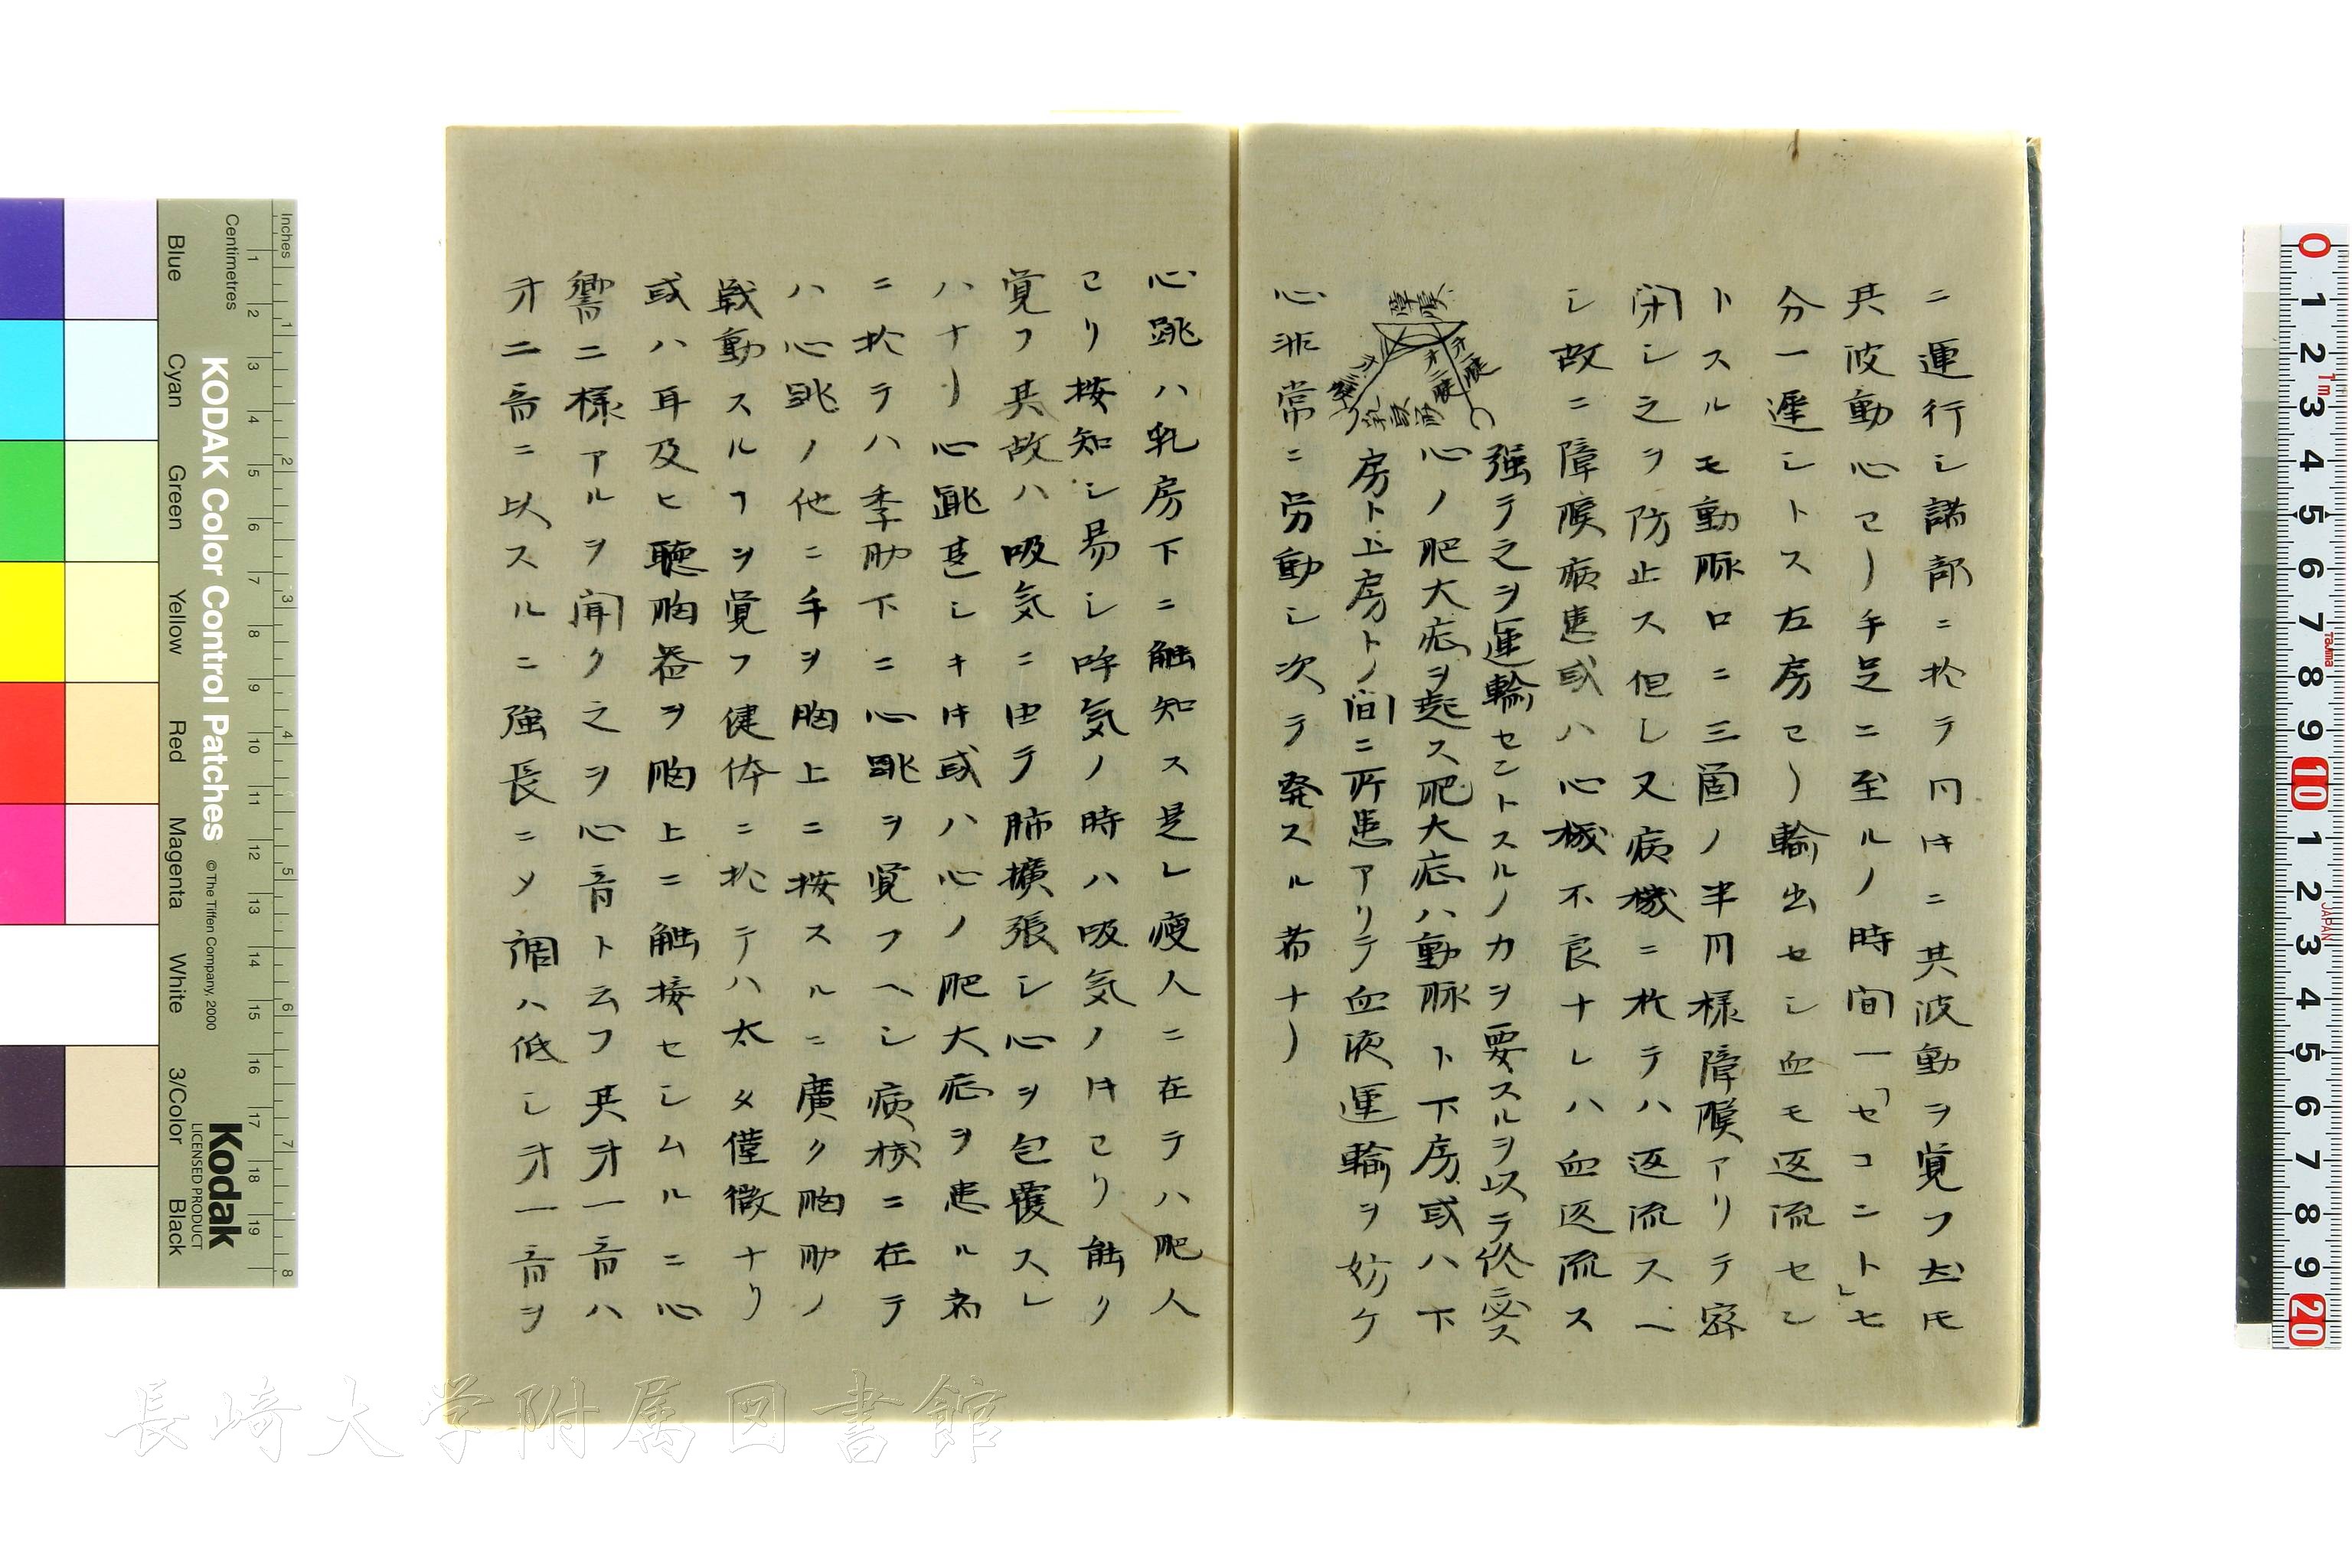 ニ運行シ諸部ニ於テ同時ニ其波動ヲ覚フ𪜈
其波動心ヨリ手足ニ至ルノ時間一「セコント」七
分一遅シトス左房ヨリ輸出セシ血モ返流セン
トスルモ動脈口ニ三箇ノ半月様障膜アリテ密
閉シ之ヲ防止ス但シ又病機ニ於テハ返流スヘ
シ故ニ障膜病患或ハ心機不良ナレハ血返流ス
強テ之ヲ運輸セントスルノ力ヲ要スルヲ以テ終ニ
心ノ肥大症ヲ起ス肥大症ハ動脈ト下房或ハ下
房ト上房トノ間ニ所患アリテ血液運輸ヲ妨ケ
心非常ニ労動シ次テ発スル者ナリ
障膜
乳頭筋
心跳ハ乳房下ニ触知ス是レ痩人ニ在テハ肥人
ヨリ按知シ易シ呼気ノ時ハ吸気ノ時ヨリ能ク
覚フ其故ハ吸気ニ由テ肺擴張シ心ヲ包覆スレ
ハナリ心跳甚シキ時或ハ心ノ肥大症ヲ患ル者
ニ於テハ季肋下ニ心跳ヲ覚フヘシ病機ニ在テ
ハ心跳ノ他ニ手ヲ胸上ニ按スルニ廣ク胸肋ノ
戦動スルヿヲ覚フ健体ニ於テハ太タ僅微ナリ
或ハ耳及ヒ聴胸器ヲ胸上ニ触接セシムルニ心
響二様アルヲ聞ク之ヲ心音ト云フ其才一音ハ
才二音ニ以スルニ強長ニメ調ハ低シ才一音ヲ
KODAK Color Control Patches
© The Tiffen Company, 2000
Kodak
LICENSED PRODUCT
Inches
Centimetres
Blue
Cyan
Green
Yellow
Red
Magenta
White
3/Color
Black
長崎大学附属図書館